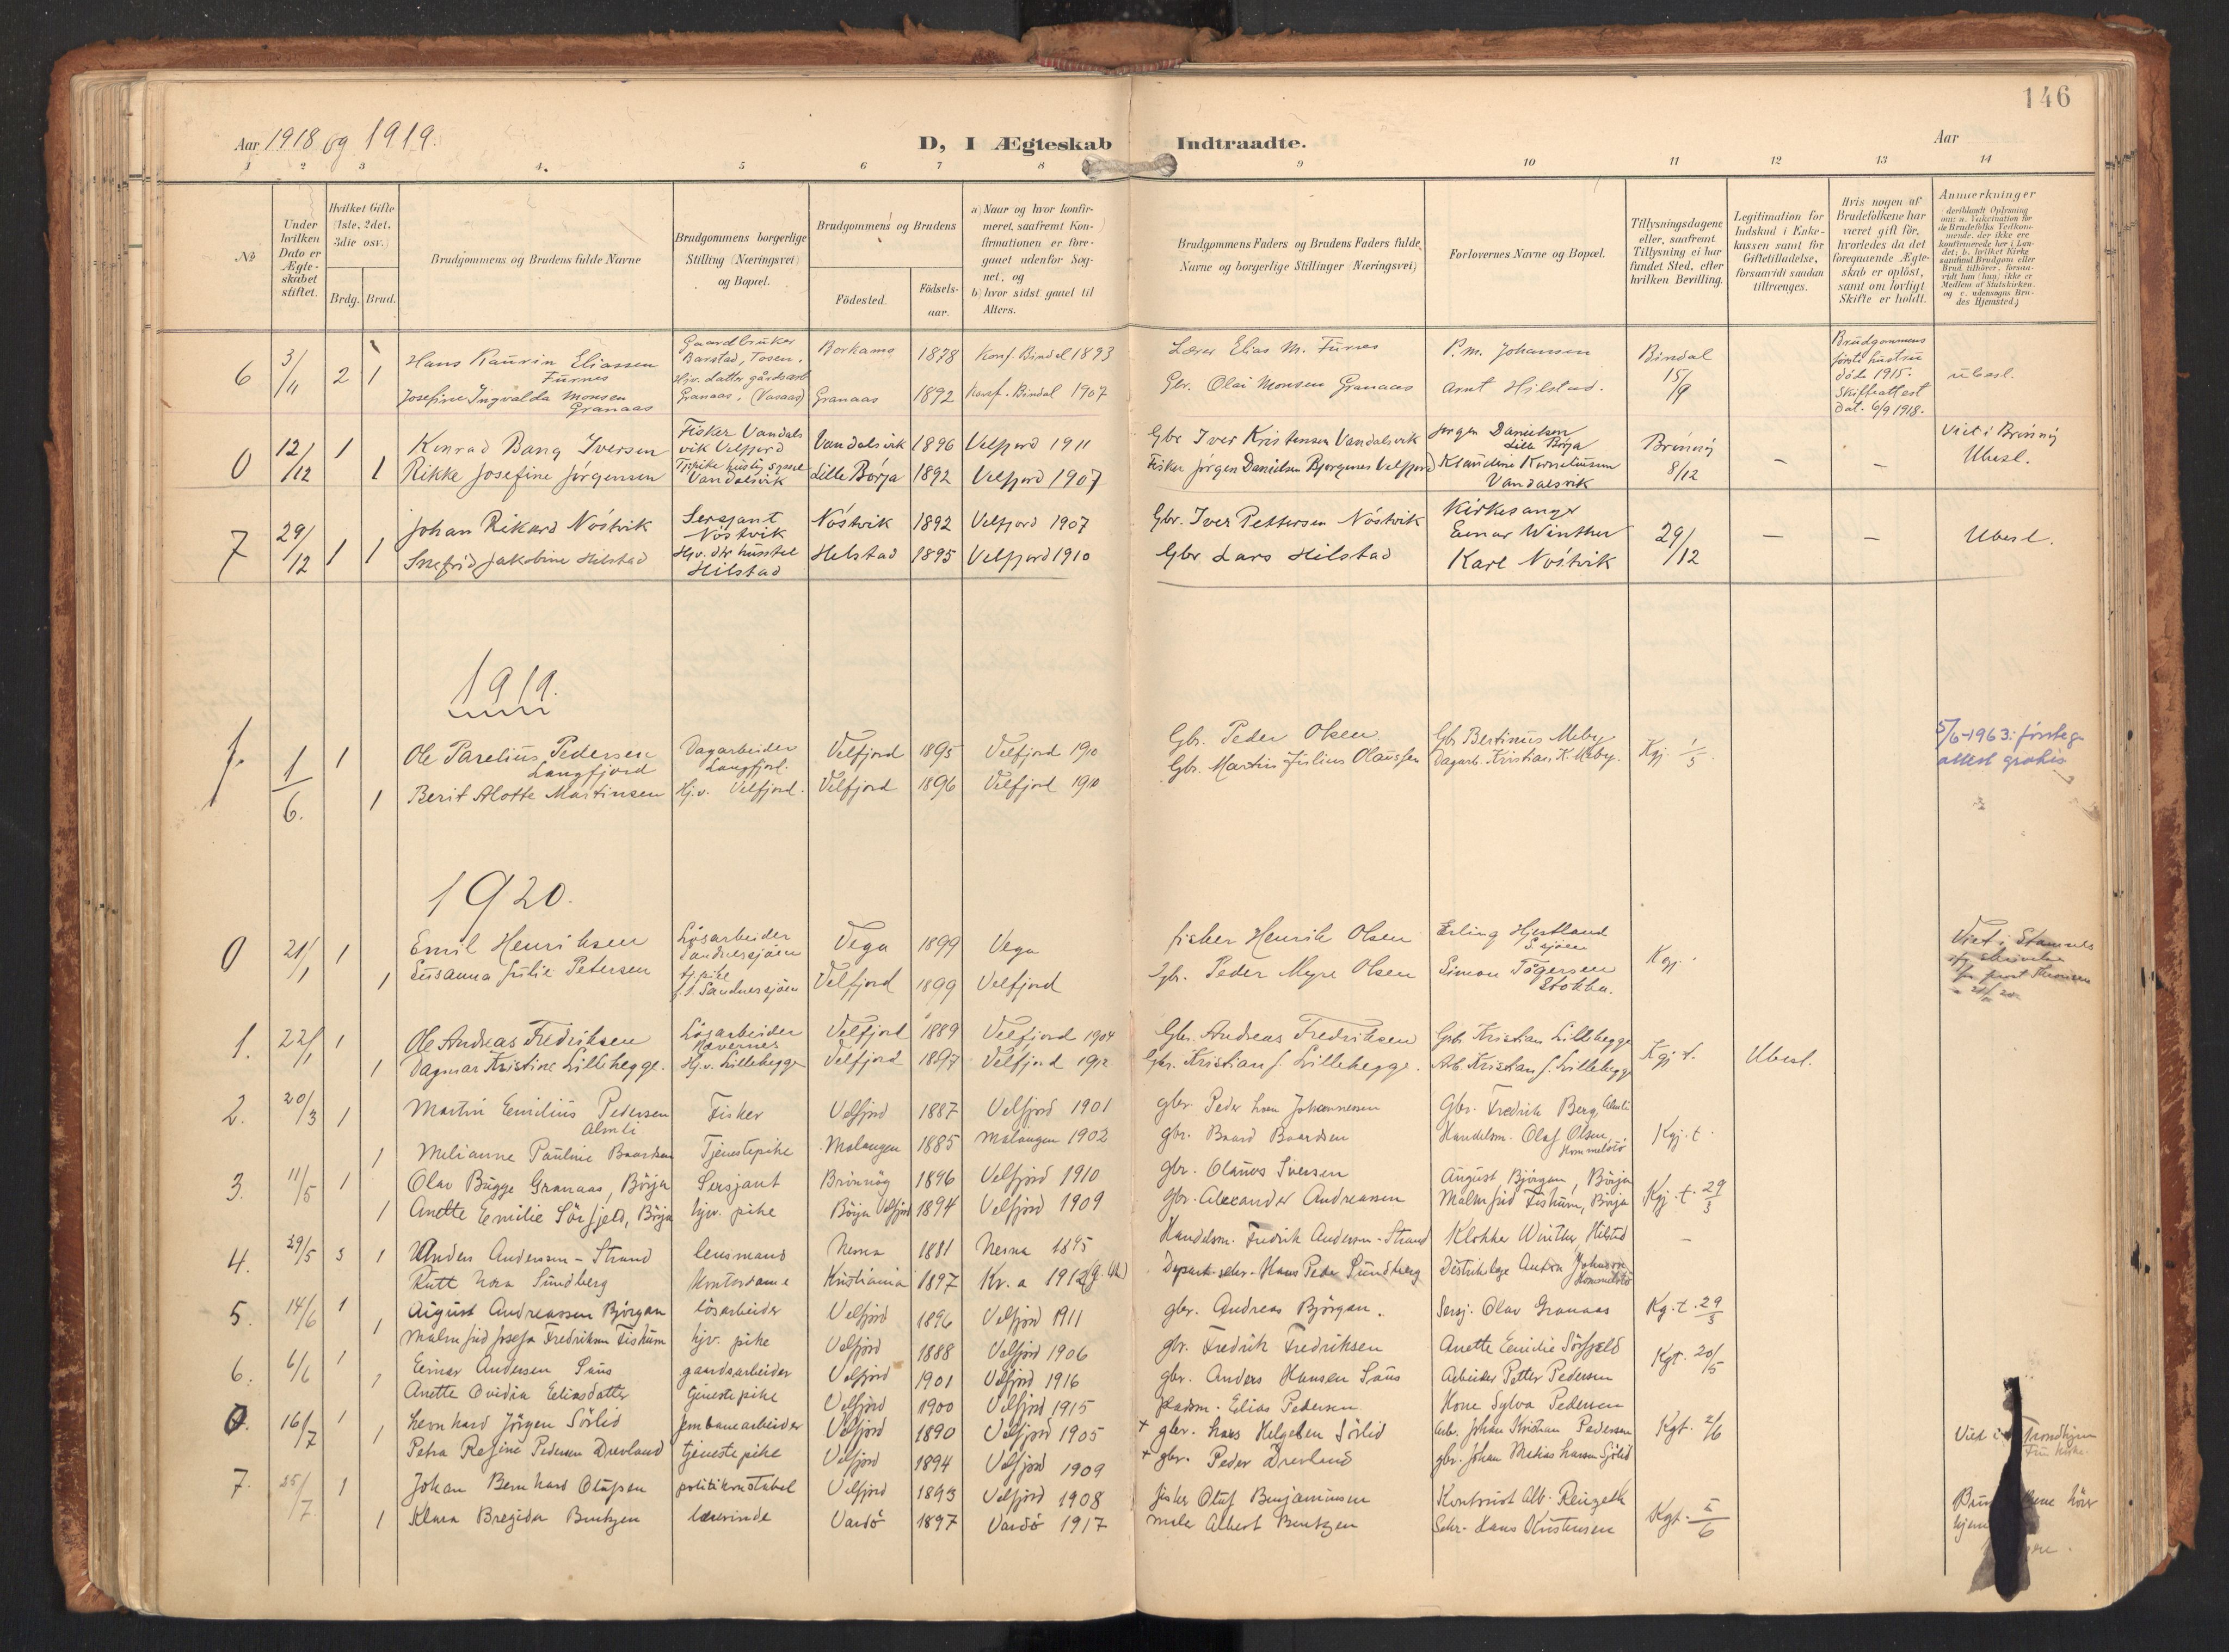 146
Aar 1918 og 1919.
D, I Ægteskab Indtraadte.
Aar
1 2 3 4. 5 6 7 8 9 10 11 12 13 14
No
Under hvilken Dato er Ægteskabet stiftet.
Hvilket Gifte (1ste, 2det, 3die osv.)
Brdg. Brud.
Brudgommens og Brudens fulde Navne
Brudgommens borgerlige Stilling (Næringsvei) og Bopæl.
Brudgommens og Brudens
Födested. Födselsaar.
a) Naar og hvor konfirmeret, saafremt Konfirmationen er foregaaet udenfor Sognet, og
b) hvor sidst gaaet til Alters.
Brudgommens Faders og Brudens Faders fulde Navne og borgerlige Stillinger (Næringsvei)
Forlovernes Navne og Bopæl.
Tillysningsdagene eller, saafremt Tillysning ei har fundet Sted, efter hvilken Bevilling.
Legitimation for Indskud i Enkekassen samt for Giftetilladelse, forsaavidt saadan tiltrænges.
Hvis nogen af Brudefolkene har været gift för, hvorledes da det foregaaende Ægteskab er oplöst, samt om lovligt Skifte er holdt.
Anmærkninger
6 3/11 2 1 Hans Kaurin Eliassen Furnes Gaardbruker Barstad, Tosen. Borkamo 1878 Konf. Bindal 1893 Lærer Elias M. Furnes P. M. Johansen Bindal 15/9 Brudgommens første hustru døde 1915. Skifteattest dat. 6/9 1918. ubesl.
Josefine Ingvalda Monsen Granaas Hjv. datter gårdsarb Granaas, (Vasaas) Granaas 1892 Konf. Bindal 1907 Gbr. Olai Monsen Granaas Arnt Hilstad.
0 12/12 1 Konrad Bang Iversen Fisker Vandalsvik Velfjord Vandalsvik 1896 Velfjord 1911 Gbr Iver Kristensen Vandalsvik Jørgen Danielsen Lille Børja Brönnöy 8/12 – – Viet i Brönnöy Ubesl.
1 Rikke Josefine Jørgensen Vandalsvik Lille Börja 1892 Velfjord 1907 Fisker Jørgen Danielsen Bjørgenes Velfjord Klaudine Korneliussen Vandalsvik
7 29/12 1 1 Johan Rikard Nöstvik Sersjant Nöstvik Nöstvik 1892 Velfjord 1907 Gbr. Iver Pettersen Nöstvik Kirkesanger Einar Winther 29/12 – – Ubesl.
Snefrid Jakobine Hilstad Hjv. dtr husstel Hilstad Hilstad 1895 Velfjord 1910 Gbr Lars Hilstad Karl Nöstvik
1919.
1. 1/6. 1 Ole Parelius Pedersen Langfjord Dagarbeider Langfjord. Velfjord 1895 Velfjord 1910 Gbr. Peder Olsen. Gbr Bertinus Meby Kgj. 1/5. 5/6-1963: førsteg. attest gratis
1 Berit Alotte Martinsen Hj.v. Velfjord. Velfjord 1896 Velfjord 1910 Gbr. Martin Julius Olaussen Dagarb. Kristian K. Meby.
1920.
0 21/1 1 Emil Henriksen Lösarbeider Sandnessjøen Vega 1899 Vega fisker Henrik Olsen Erling Hjertland S.sjøen Kgj. Viet i Stamnes
1 Susanna Julie Petersen tj. pike f.t. Sandnessjøen Velfjord 1899 Velfjord Gbr. Peder Myre Olsen Simon Tögersen Stokka.
1. 22/1 1 Ole Andreas Fredriksen Lösarbeider Nævernes Velfjord 1889 Velfjord 1904 Gbr. Andreas Fredriksen Gbr. Kristian Lillehegge Kgj. t. Ubesl.
1 Dagmar Kristine Lillehegge. Hj.v. Lillehegge Velfjord 1897 Velfjord 1912 Gbr. Kristian J. Lillehegge. Arb. Kristian J. Lillehegge
2. 20/3 1 Martin Emilius Pedersen Almli Fisker Velfjord 1887 Velfjord 1901 gbr. Peder Johannessen Gbr. Fredrik Berg, Almli Kgj. t.
1 Melianne Pauline Baardsen Tjenestepike Malangen 1885 Malangen 1902 gbr. Baard Baardsen Handelsm. Olaf Olsen, Hommelstö
3. 11/5 1 Olav Bugge Granaas, Börja Sersjant Brönnöy 1896 Velfjord 1910 gbr. Olaus Iversen August Björgan, Börja Kgj. t. 29/3
1 Anette Emilie Sörfjeld, Börja hjv. pike Börja Velfjord 1894 Velfjord 1909 gbr. Alexander Andreassen Malmfrid Fiskum, Börja
4. 29/5 3 1 Anders Andersen-Strand lensmand Nesna 1881 Nesna 1895 Handelsm. Fredrik Andersen-Strand Klokker Winther, Hilstad –
Rutt Nora Sundberg Kontordame Kristiania 1897 Kr.a 1912 Depart. sekr. Hans Peder Sundberg Distriktslege Anton Johnson Hommelstö
5. 14/6 1 August Andreassen Björgan lösarbeider Velfjord 1896 Velfjord 1911 gbr. Andreas Björgan. Sersj. Olav Granaas Kg. t. 29/3
1 Malmfrid Josefa Fredriksen Fiskum hjv. pike Velfjord 1888 Velfjord 1906 gbr. Fredrik Fredriksen Anette Emilie Sörfjeld
6. 6/6 1 Einar Andersen Saus gaardsarbeider Velfjord 1901 Velfjord 1916 gbr. Anders Hansen Saus Arbeider Petter Pedersen Kgt. 20/5
1 Anette Ovidia Eliasdatter tjenestepike Velfjord 1900 Velfjord 1915 pladsm. Elias Pedersen Kone Sylva Pedersen
0. 16/7 1 Leonhard Jörgen Sörlid Jernbanearbeider Velfjord 1890 Velfjord 1905 + gbr. Lars Helgesen Sörlid Arb. Johan Kristian Pedersen Kgt. 2/6 Viet i Trondhjem
1 Petra Resine Pedersen Drevland tjenestepike Velfjord 1894 Velfjord 1909 + gbr. Peder Drevland gbr. Johan Mikias Larsen Sjölid
7. 25/7. 1 Johan Bernhard Olufsen politikonstabel Velfjord 1893 Velfjord 1908 fisker Oluf Benjaminsen Kontorist Alb. Kgt. 6
1 Klara Bregida Bentzen lærerinde Vardö 1897 Vardö 1917 maler Albert Bentzen Sekr. Hans Kristensen